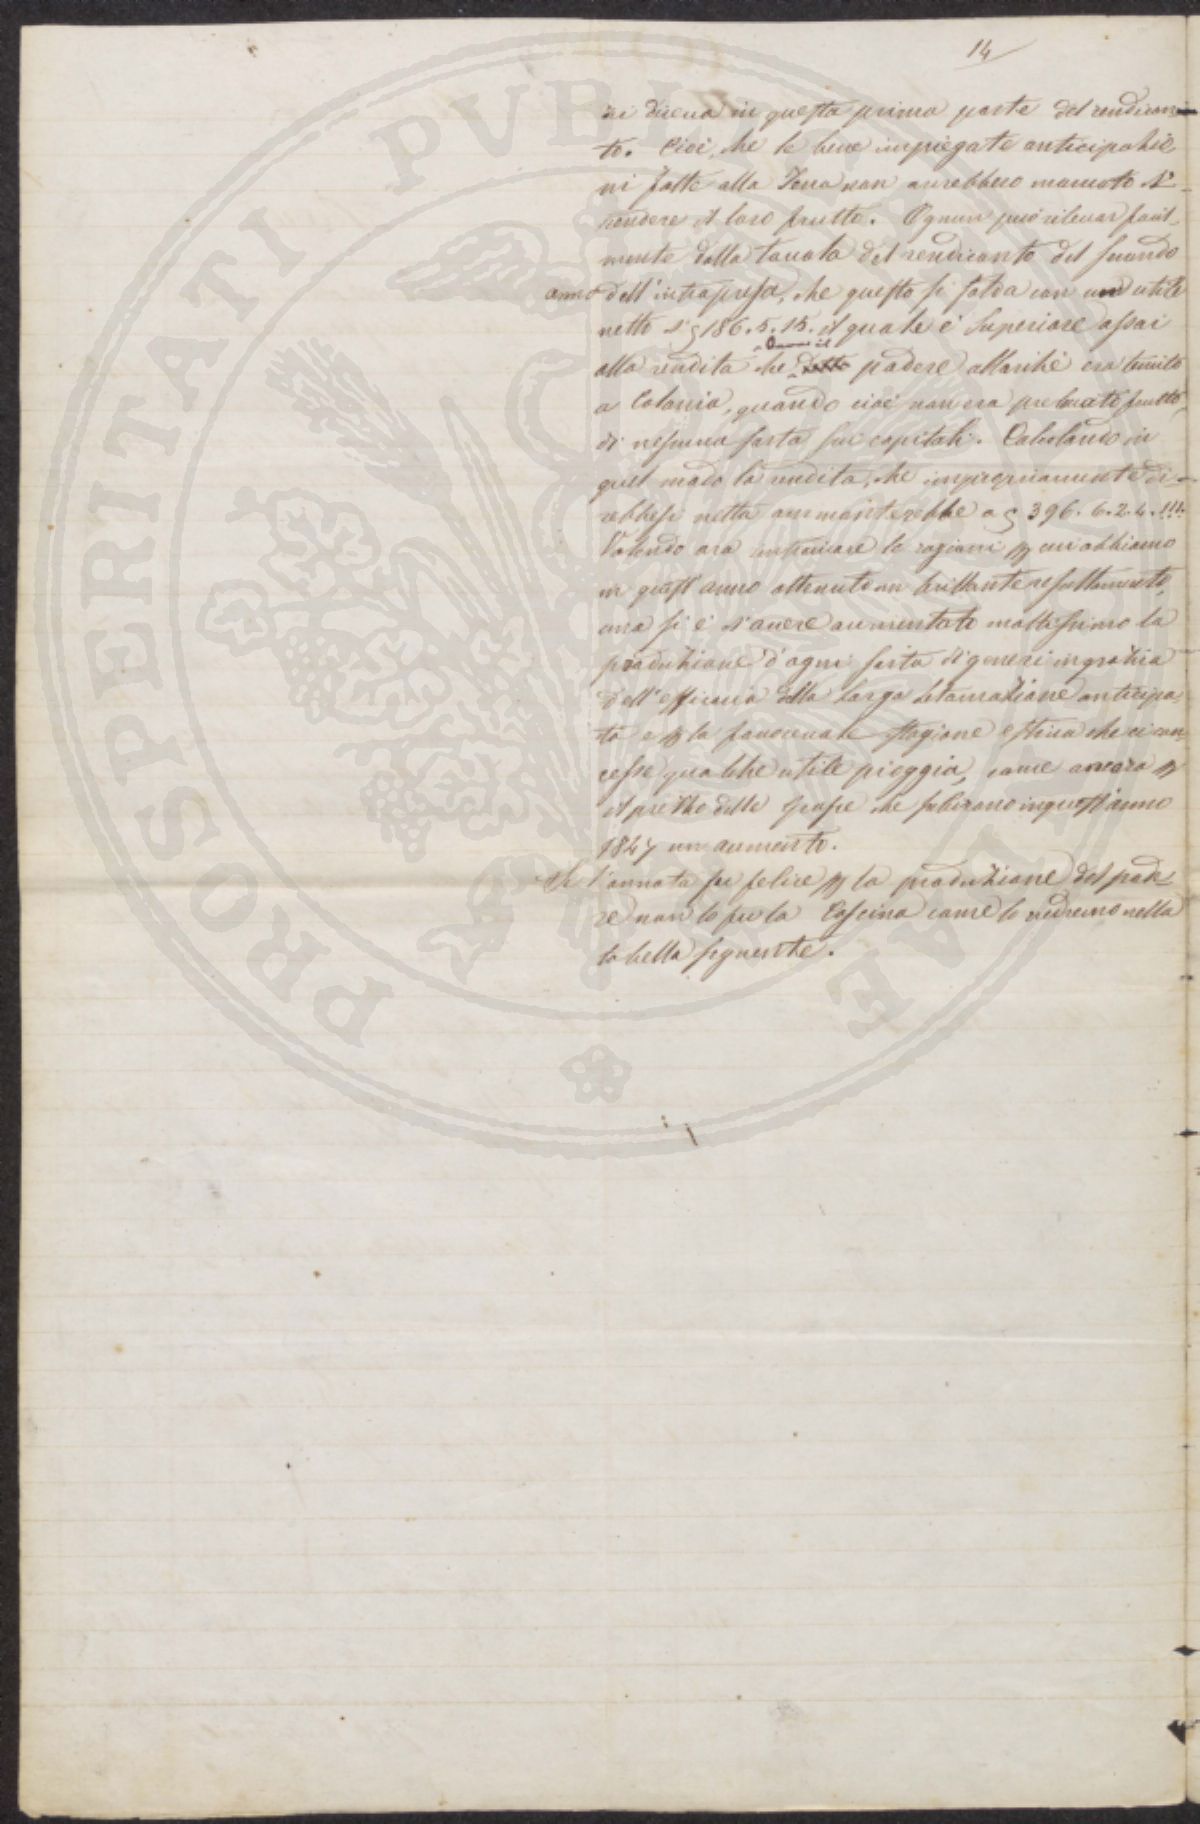 14
si diceva in questa prima parte del rendicon-
to. Cioè, che le bene impiegate anticipazio
ni fatte alla Terra non avrebbero mancato di
rendere il loro frutto. Ognun può rilevar facil
mente dalla tavola del rendiconto del secondo
anno dell'intrapresa, che questo si salda con und utile
netto di 186.5.15. il quale è Superiore assai
alla rendita che dava il detto podere allorchè era tenuto
a Colonia, quando cioè non era prelevato frutto
di nessuna sorta sui capitali. Calcolando in
quel modo la rendita, che impropriamente di-
rebbesi netta ammonterebbe a 396.6.2.4.!!!
Volendo ora le ragioni p cui abbiamo
in quest'anno ottenuto un brillante resultamento,
una si è d'avere aumentato moltissimo la
produzione d'ogni sorta di generi in grazia
dell'efficacia della larga letamazione anticipa
ta e p la favorevole stagione estiva che ci con
cesse qualche utile pioggia, come ancora p
il prezzo delle che subirono in quest'anno
1847 un aumento.
Se l'annata fu felice p la produzione del pode
re non lo fu la Cascina come lo vedremo nella
tabella seguente.
PROSPERITATI PVBLICAE